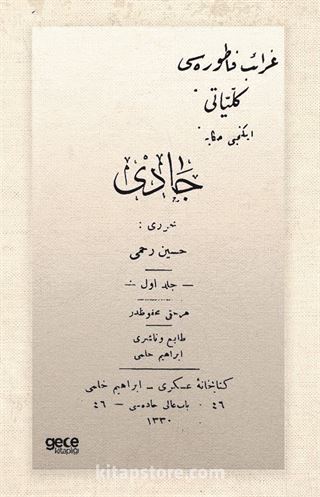 غرائب فاطوره‌سی
كلّیّاتی
ایكنجی حكایه
جادی
محرری :
حسین رحمی
— جلد اول —
هر حقی محفوظدر
طابع و ناشری
ابراهیم حلمی
كتابخانهٔ عسكری – ابراهیم حلمی
٤٦ باب عالی جاده‌سی — ٤٦
١٣٣٠
gece
kitaplığı
kitapstore.com